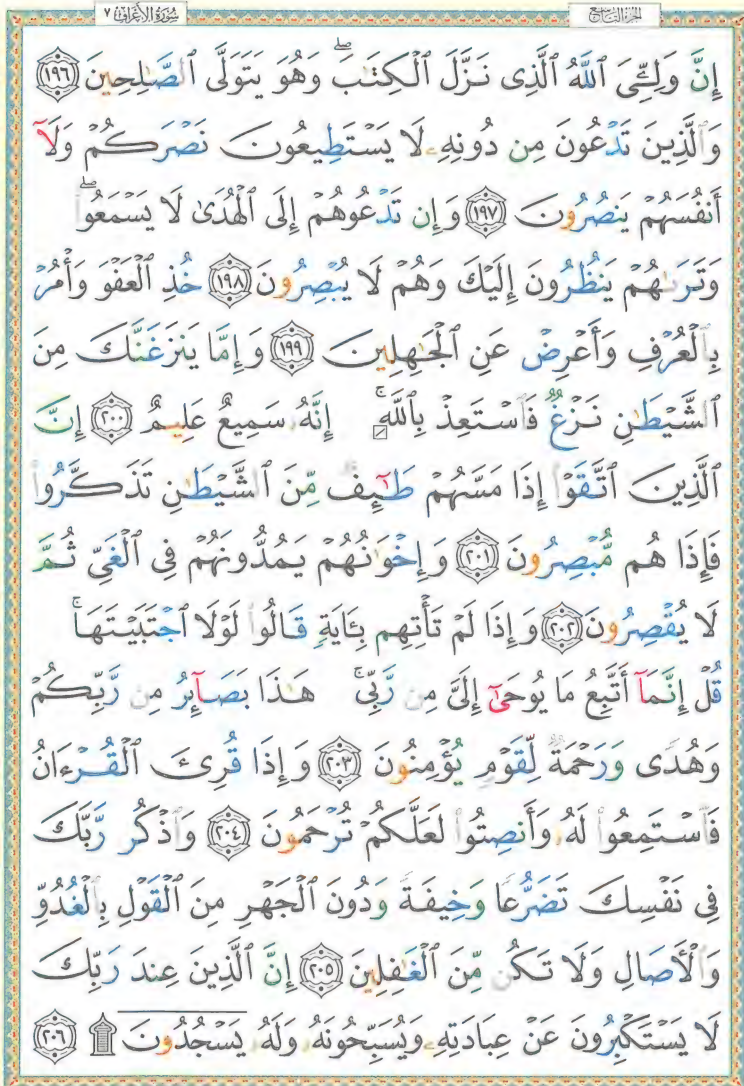 سُورَةُ الأَعْرَافِ ٧
الجُزْءُ التَّاسِعُ
إِنَّ وَلِـِّۧيَ ٱللَّهُ ٱلَّذِى نَزَّلَ ٱلْكِتَـٰبَ ۖ وَهُوَ يَتَوَلَّى ٱلصَّـٰلِحِينَ ١٩٦
وَٱلَّذِينَ تَدْعُونَ مِن دُونِهِۦ لَا يَسْتَطِيعُونَ نَصْرَكُمْ وَلَآ
أَنفُسَهُمْ يَنصُرُونَ ١٩٧ وَإِن تَدْعُوهُمْ إِلَى ٱلْهُدَىٰ لَا يَسْمَعُوا۟ ۖ
وَتَرَىٰهُمْ يَنظُرُونَ إِلَيْكَ وَهُمْ لَا يُبْصِرُونَ ١٩٨ خُذِ ٱلْعَفْوَ وَأْمُرْ
بِٱلْعُرْفِ وَأَعْرِضْ عَنِ ٱلْجَـٰهِلِينَ ١٩٩ وَإِمَّا يَنزَغَنَّكَ مِنَ
ٱلشَّيْطَـٰنِ نَزْغٌ فَٱسْتَعِذْ بِٱللَّهِ ۚ إِنَّهُۥ سَمِيعٌ عَلِيمٌ ٢٠٠ إِنَّ
ٱلَّذِينَ ٱتَّقَوْا۟ إِذَا مَسَّهُمْ طَـٰٓئِفٌ مِّنَ ٱلشَّيْطَـٰنِ تَذَكَّرُوا۟
فَإِذَا هُم مُّبْصِرُونَ ٢٠١ وَإِخْوَٰنُهُمْ يَمُدُّونَهُمْ فِى ٱلْغَىِّ ثُمَّ
لَا يُقْصِرُونَ ٢٠٢ وَإِذَا لَمْ تَأْتِهِم بِـَٔايَةٍ قَالُوا۟ لَوْلَا ٱجْتَبَيْتَهَا ۚ
قُلْ إِنَّمَآ أَتَّبِعُ مَا يُوحَىٰٓ إِلَىَّ مِن رَّبِّى ۚ هَـٰذَا بَصَآئِرُ مِن رَّبِّكُمْ
وَهُدًى وَرَحْمَةٌ لِّقَوْمٍ يُؤْمِنُونَ ٢٠٣ وَإِذَا قُرِئَ ٱلْقُرْءَانُ
فَٱسْتَمِعُوا۟ لَهُۥ وَأَنصِتُوا۟ لَعَلَّكُمْ تُرْحَمُونَ ٢٠٤ وَٱذْكُر رَّبَّكَ
فِى نَفْسِكَ تَضَرُّعًا وَخِيفَةً وَدُونَ ٱلْجَهْرِ مِنَ ٱلْقَوْلِ بِٱلْغُدُوِّ
وَٱلْـَٔاصَالِ وَلَا تَكُن مِّنَ ٱلْغَـٰفِلِينَ ٢٠٥ إِنَّ ٱلَّذِينَ عِندَ رَبِّكَ
لَا يَسْتَكْبِرُونَ عَنْ عِبَادَتِهِۦ وَيُسَبِّحُونَهُۥ وَلَهُۥ يَسْجُدُونَ ۩ ٢٠٦